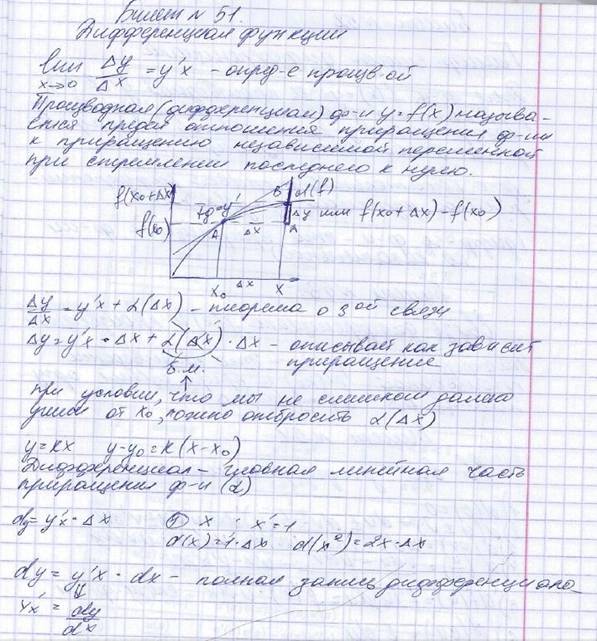 Билет № 51.
Дифференциал функции
lim Δy/Δx = y'x - опред-е произв-ой
x→0
Производная (дифференциал) ф-и y=f(x) называ-
ется предел отношения приращения ф-ии
к приращению независимой переменной
при стремлении последнего к нулю.
f(x₀+Δx) tg=y' B d(f)
f(x₀) A Δx Δy или f(x₀+Δx)-f(x₀)
x₀ Δx x
Δy/Δx = y'x + α(Δx) - теорема о 3ой связи
Δy = y'x • Δx + α(Δx) • Δx - описывает как зависит
б.м. приращение
при условии, что мы не слишком далеко
ушли от x₀, можно отбросить α(Δx)
y=kx y-y₀=k(x-x₀)
Дифференциал - главная линейная часть
приращения ф-и (d)
dy=y'x • Δx ① x x'=1
d(x)=1•Δx d(x²)=2x•Δx
dy = y'x • dx - полная запись дифференциала
y'x = dy/dx